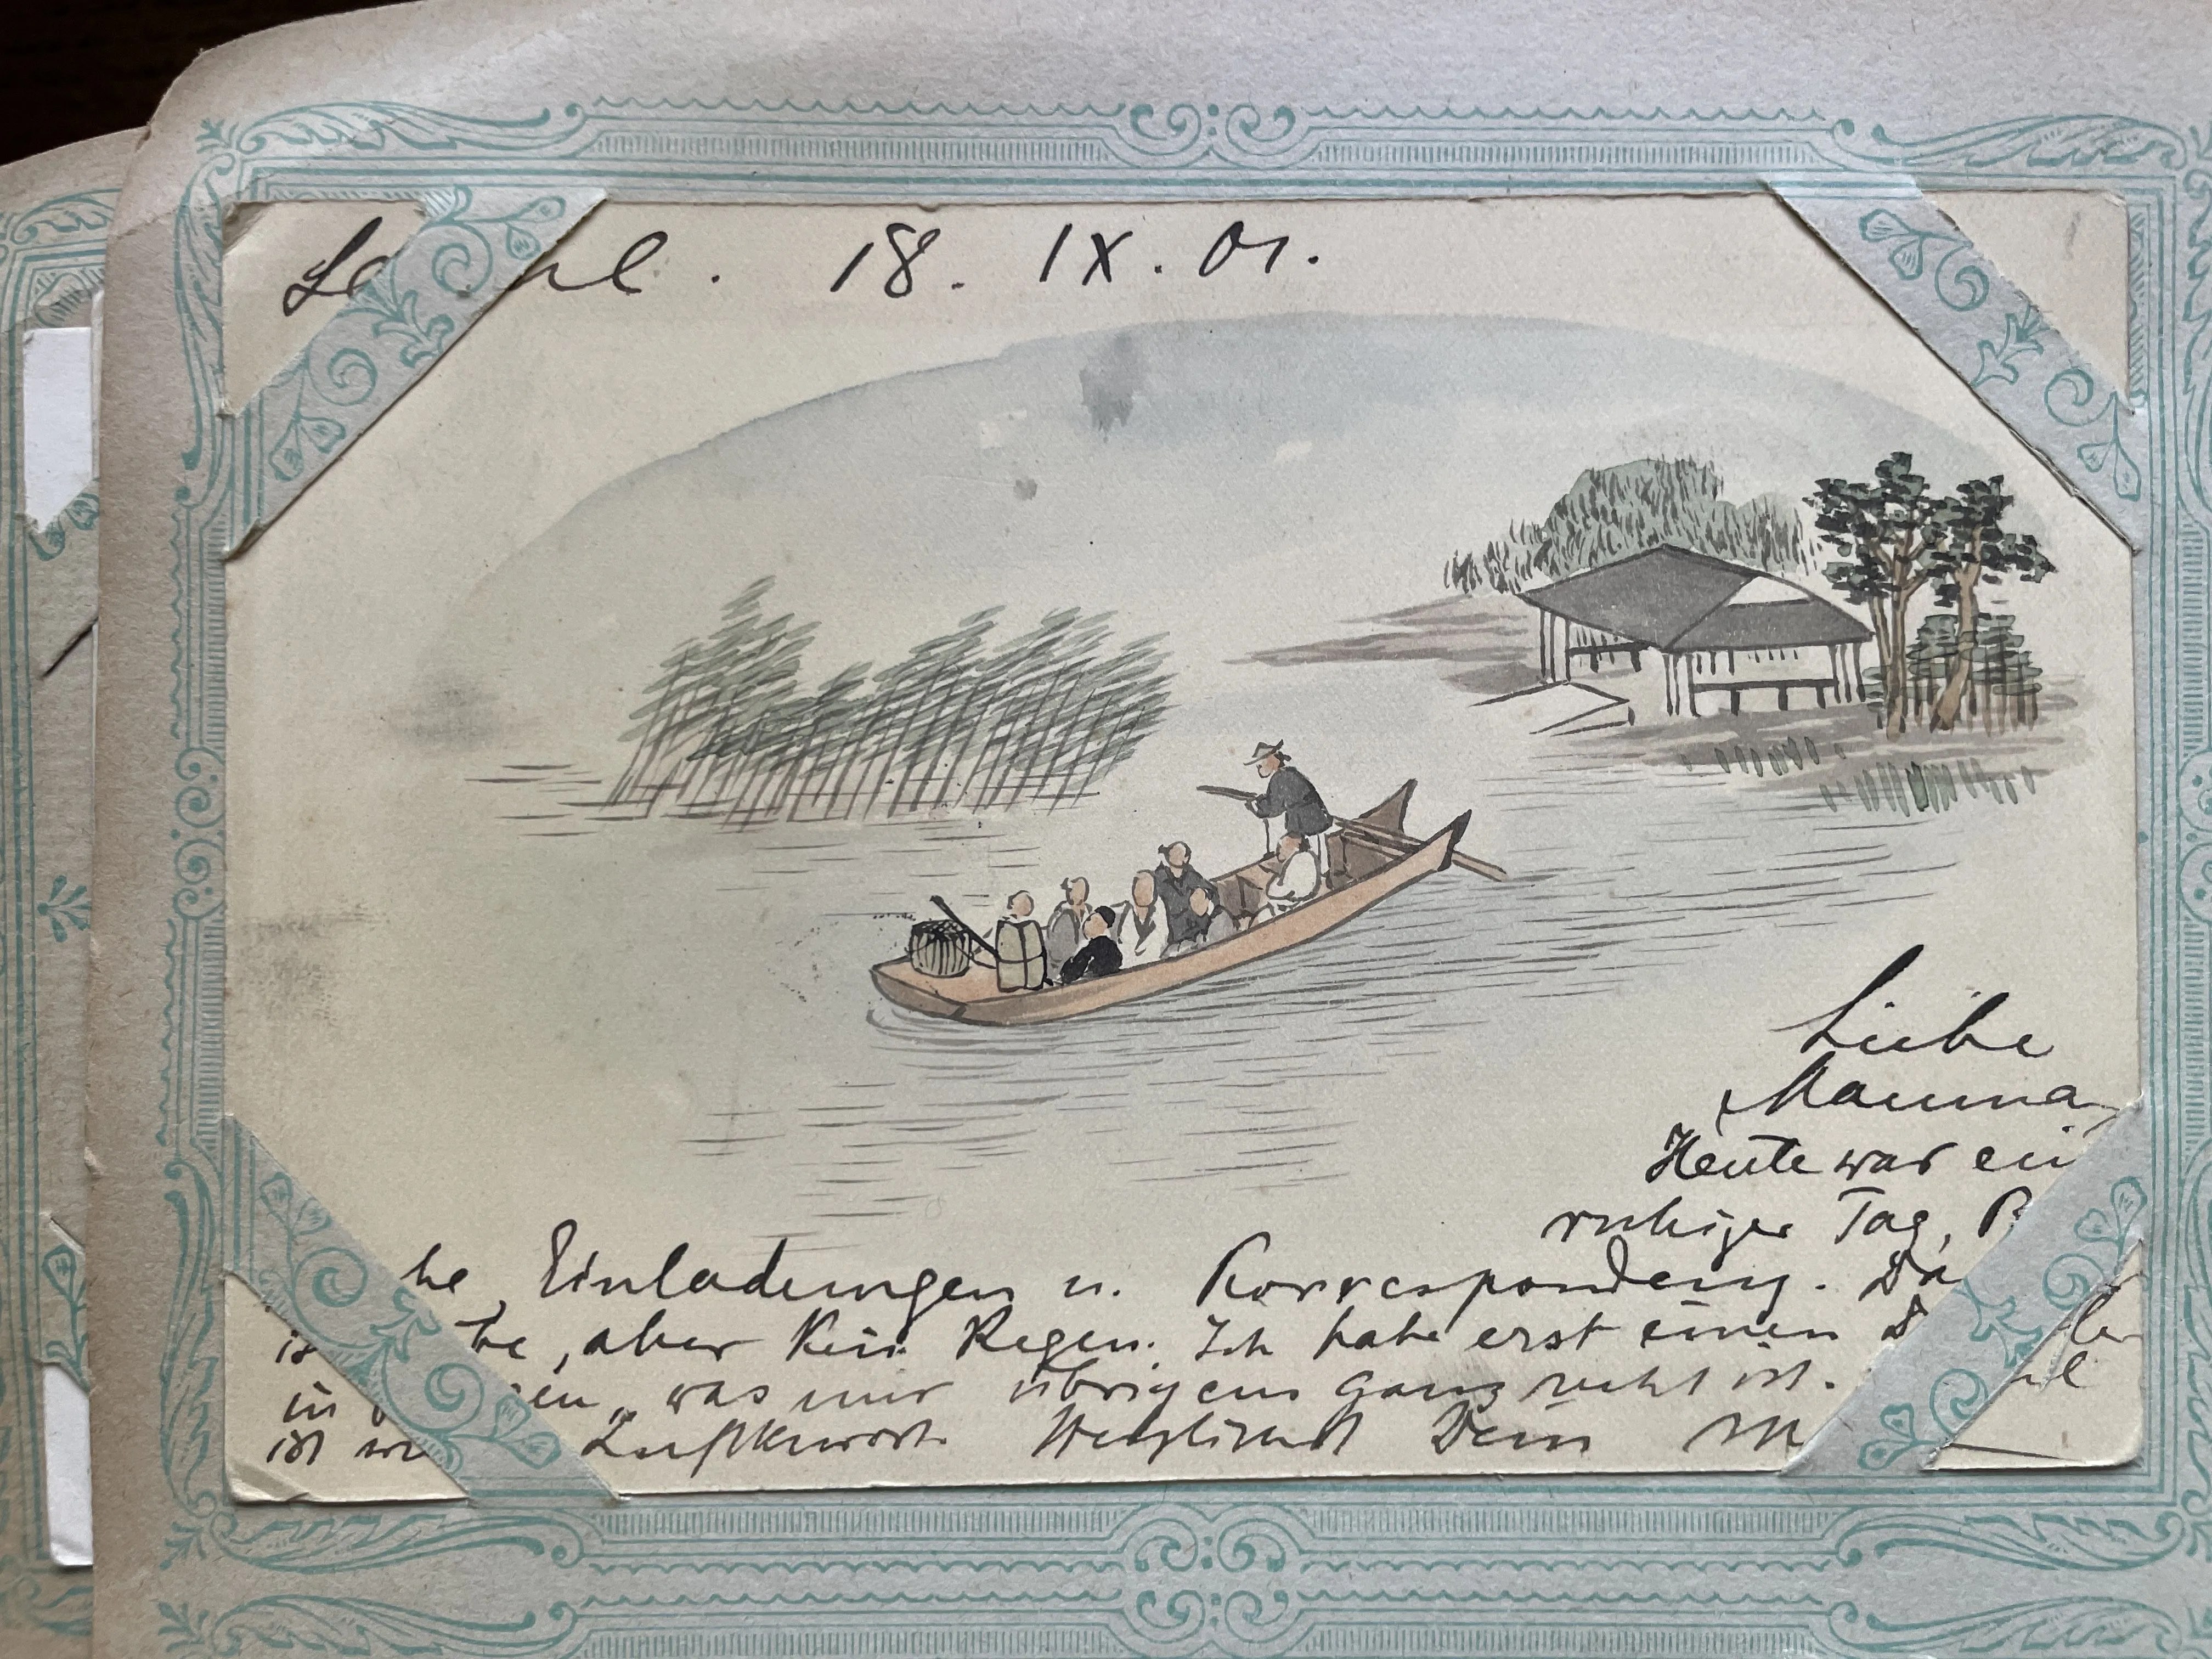 18. IX. 01.
Liebe
Mamma,
Heute war ein
ruhiger Tag,
Einladungen u. Korrespondenz.
aber kein Regen. Ich habe erst einen
was mir übrigens ganz recht ist.
Luftkurort. Herzlichst Dein M